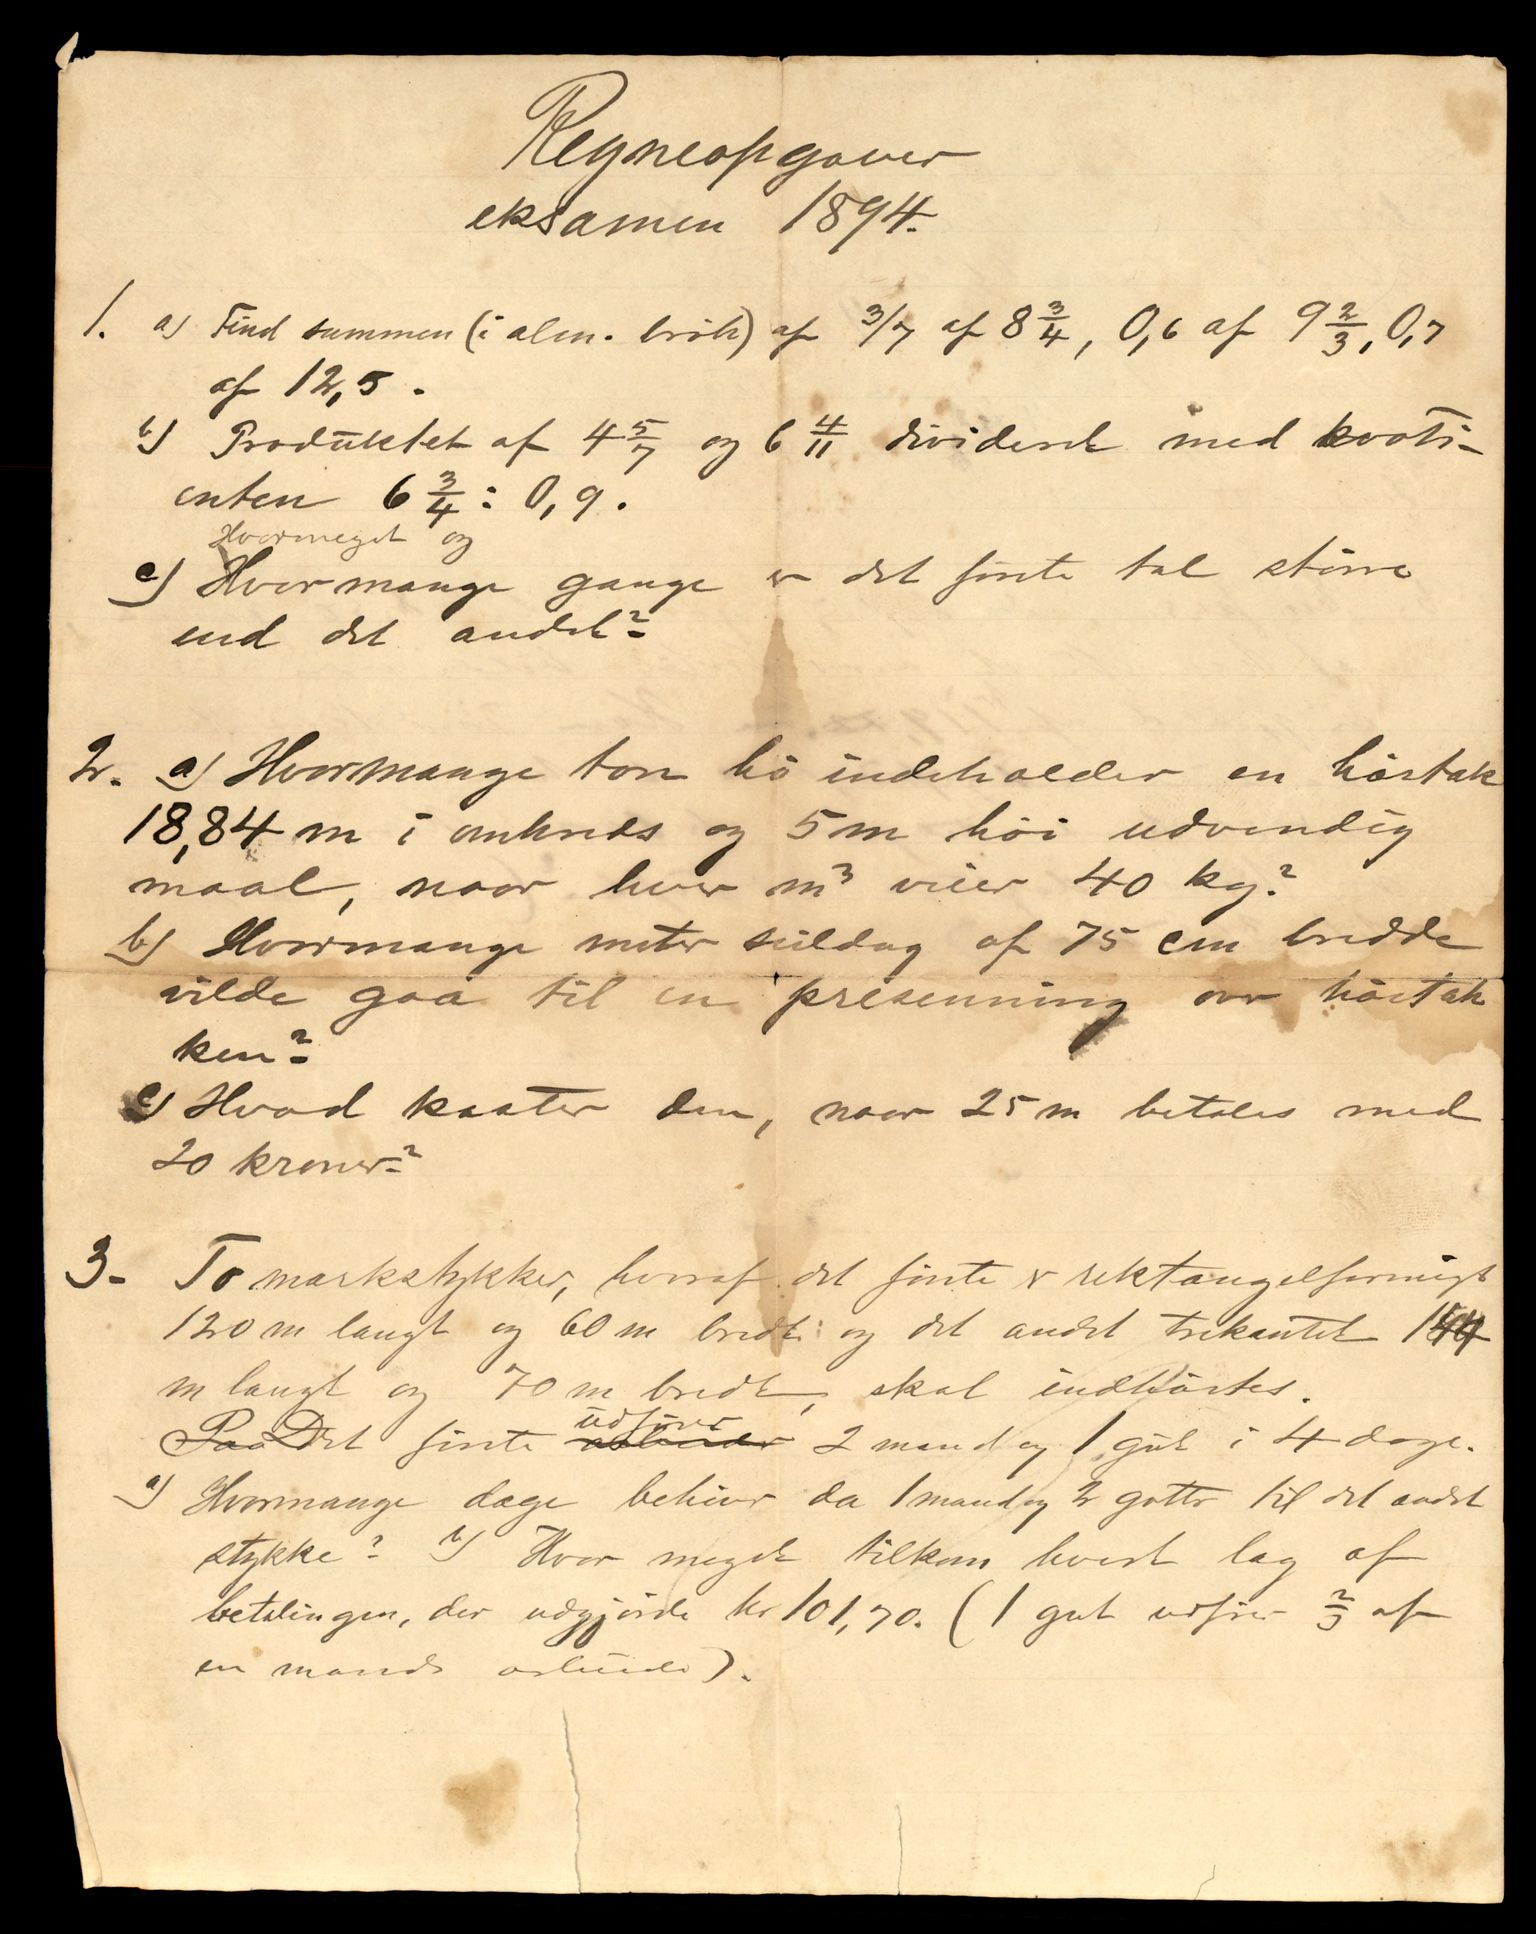 Regneopgaver
eksamen 1894.
1. a) Find summen (i alm. brök) af 3/7 af 8 3/4, 0,6 af 9 2/3, 0,7
af 12,5.
b) Produktet af 4 5/7 og 6 4/11 divideret med kvoti-
enten 6 3/4 : 0,9.
Hvormeget og
c) Hvormange gange er det förste tal större
end det andet?
2. a) Hvormange ton hö indeholder en höstak
18,84 m i omkreds og 5 m höi udvendig
maal, naar hver m³ veier 40 kg?
b) Hvormange meter seildug af 75 cm bredde
vilde gaa til en presenning over höstak
ken?
c) Hvad koster den, naar 25 m betales med
20 kroner?
3. To markstykker, hvoraf det förste er rektangelformigt
120 m langt og 60 m bredt og det andet trekantet 144
m langt og 70 m bredt, skal indhöstes.
Paa Det förste udförer arbeider 2 mand og 1 gut i 4 dage.
a) Hvormange dage behöver da 1 mand og 2 gutter til det andet
stykke? b) Hvor meget tilkom hvert lag af
betalingen, der udgjorde kr 101,70. (1 gut udfører 2/3 af
en mands arbeide).